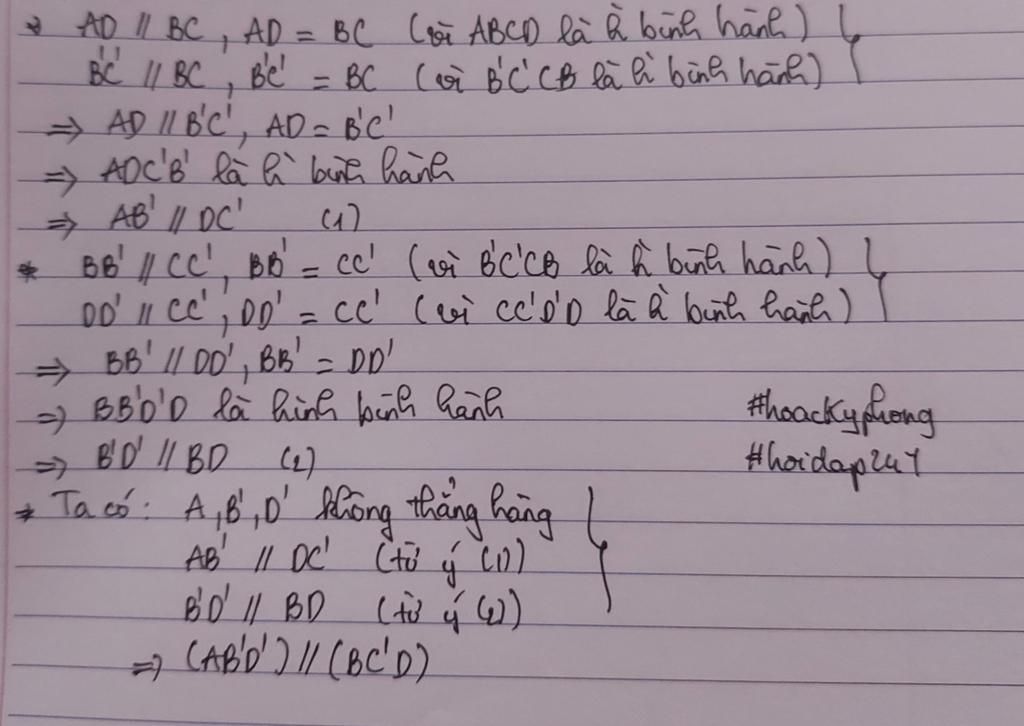 * AD // BC , AD = BC (vì ABCD là h̀ bình hành)
B'C' // BC , B'C' = BC (vì B'C'CB là h̀ bình hành)
=> AD // B'C', AD = B'C'
=> ADC'B' là h̀ bình hành
=> AB' // DC' (1)
* BB' // CC', BB' = CC' (vì B'C'CB là h̀ bình hành)
DD' // CC', DD' = CC' (vì CC'D'D là h̀ bình hành)
=> BB' // DD', BB' = DD'
=> BB'D'D là hình bình hành #hoackyphong
=> B'D' // BD (2) #hoidap247
* Ta có: A, B', D' không thẳng hàng
AB' // DC' (từ ý (1))
B'D' // BD (từ ý (2))
=> (AB'D') // (BC'D)